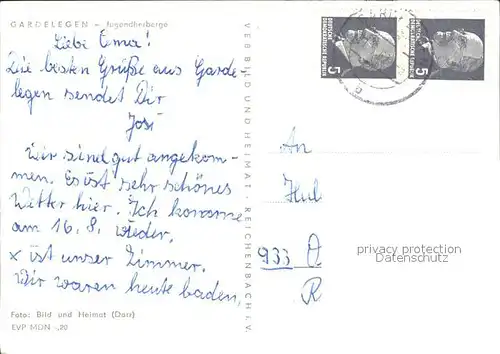 GARDELEGEN – Jugendherberge
Liebe Oma!
Die besten Grüße aus Garde-
legen sendet Dir
Josi
Wir sind gut angekom-
men. Es ist sehr schönes
Wetter hier. Ich komme
am 16.8. wieder.
x ist unser Zimmer.
Wir waren heute baden.
Foto: Bild und Heimat (Darr)
EVP MDN -,20
VEB BILD UND HEIMAT - REICHENBACH i. V.
DEUTSCHE
DEMOKRATISCHE REPUBLIK
5
DEUTSCHE
DEMOKRATISCHE REPUBLIK
5
An
933 A
R
privacy protection
Datenschutz